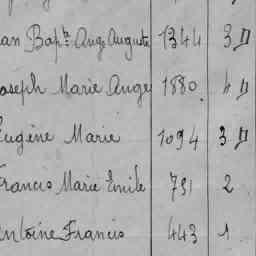 an Bapte Ange Auguste 1344 3 D
oseph Marie Ange 1880 4 D
Eugène Marie 1094 3 D
Francis Marie Emile 751 2
Antoine Francis 443 1